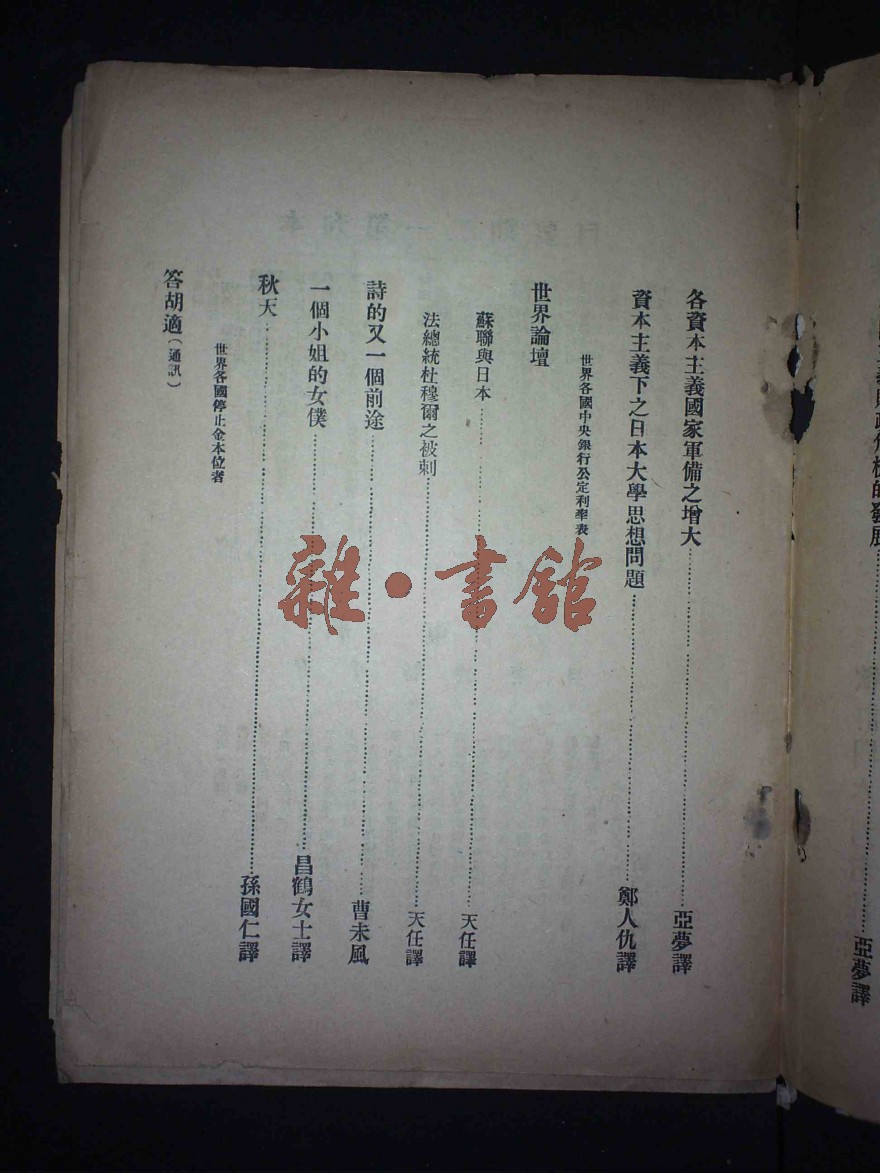 亞夢譯
各資本主義國家軍備之增大……亞夢譯
資本主義下之日本大學思想問題……鄭人仇譯
世界各國中央銀行公定利率表
世界論壇
蘇聯與日本……天任譯
法總統杜穆爾之被刺……天任譯
詩的又一個前途……曹未風
一個小姐的女僕……昌鶴女士譯
秋天……孫國仁譯
世界各國停止金本位者
答胡適(通訊)
雜·書館